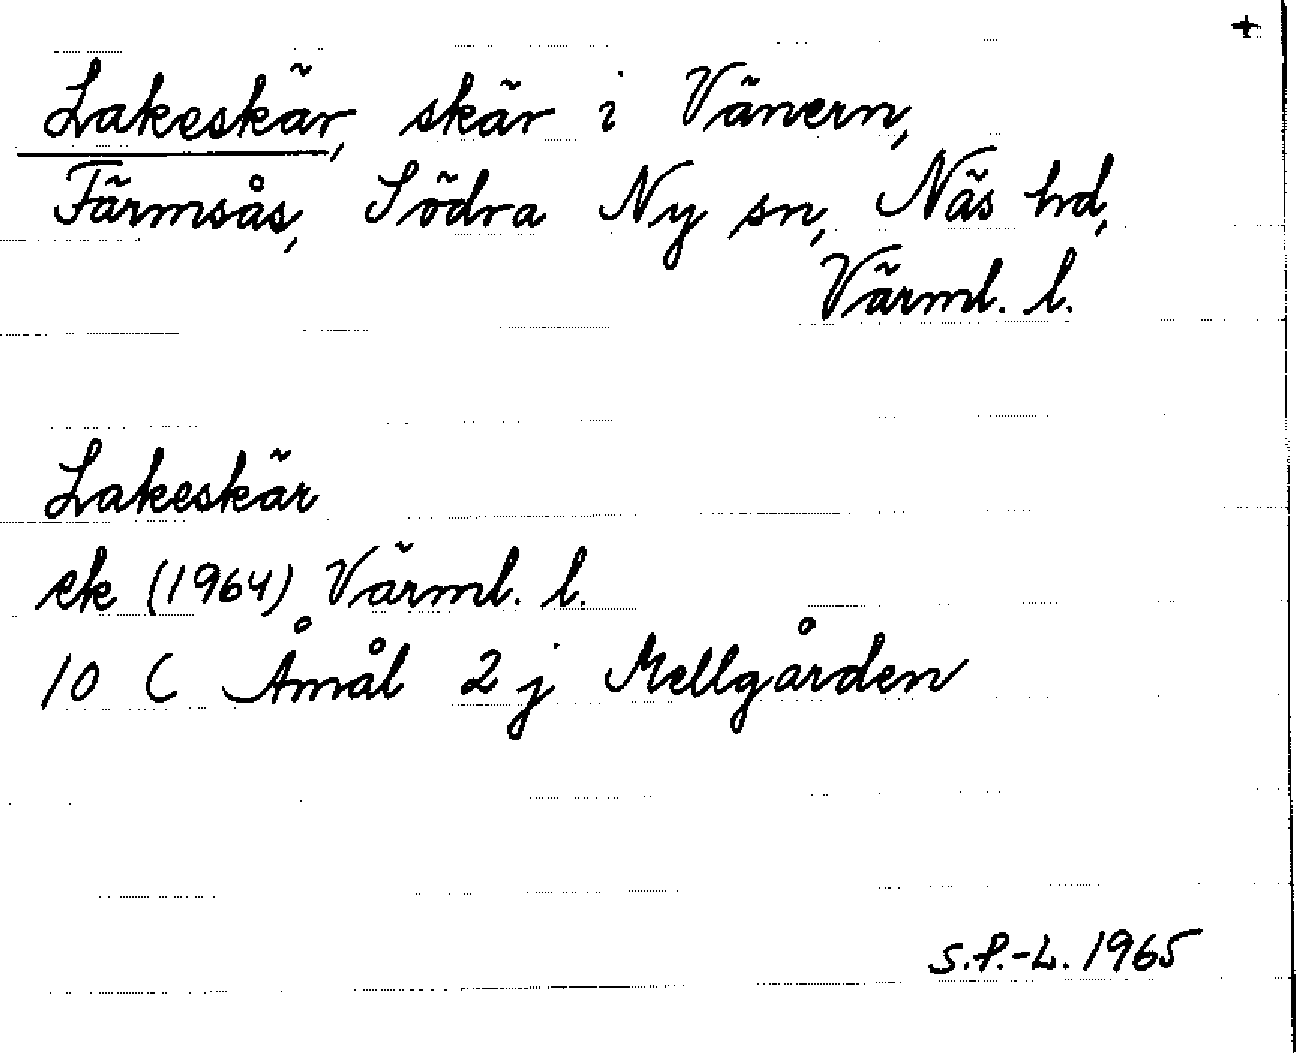 +
Lakeskär, skär i Vänern,
Färmsås, Södra Ny sn, Näs hd,
Värml. l.
Lakeskär
ek (1964) Värml. l.
10 C Åmål 2 j Mellgården
S.P.-L. 1965